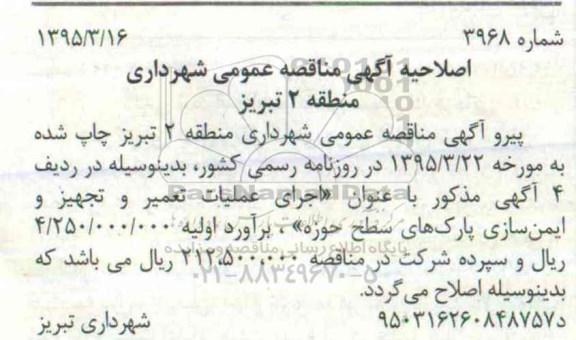 شماره ۳۹۶۸ ۱۳۹۵/۳/۱۶
اصلاحیه آگهی مناقصه عمومی شهرداری
منطقه ۲ تبریز
پیرو آگهی مناقصه عمومی شهرداری منطقه ۲ تبریز چاپ شده
به مورخه ۱۳۹۵/۳/۲۲ در روزنامه رسمی کشور، بدینوسیله در ردیف
۴ آگهی مذکور با عنوان «اجرای عملیات تعمیر و تجهیز و
ایمن‌سازی پارک‌های سطح حوزه» برآورد اولیه ۴/۲۵۰/۰۰۰/۰۰۰
ریال و سپرده شرکت در مناقصه ۲۱۲,۵۰۰,۰۰۰ ریال می باشد که
بدینوسیله اصلاح می‌گردد.
۹۵۰۳۱۶۲۶۰۸۴۸۷۵۷د شهرداری تبریز
ParsNamadData
پایگاه اطلاع رسانی مناقصه و مزایده
۰۲۱-۸۸۳۴۹۶۷۰-۵